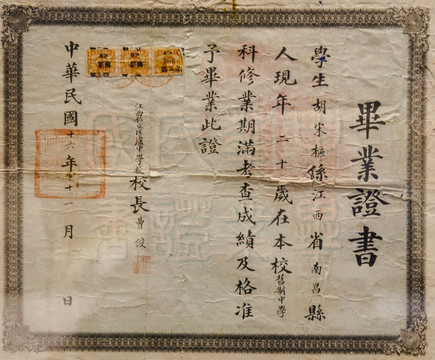 畢業證書
學生胡宋樞係江西省南昌縣
人現年二十歲在本校舊制中學
科修業期滿考查成績及格准
予畢業此證
校長曹俊
中華民國十六年十一月 日